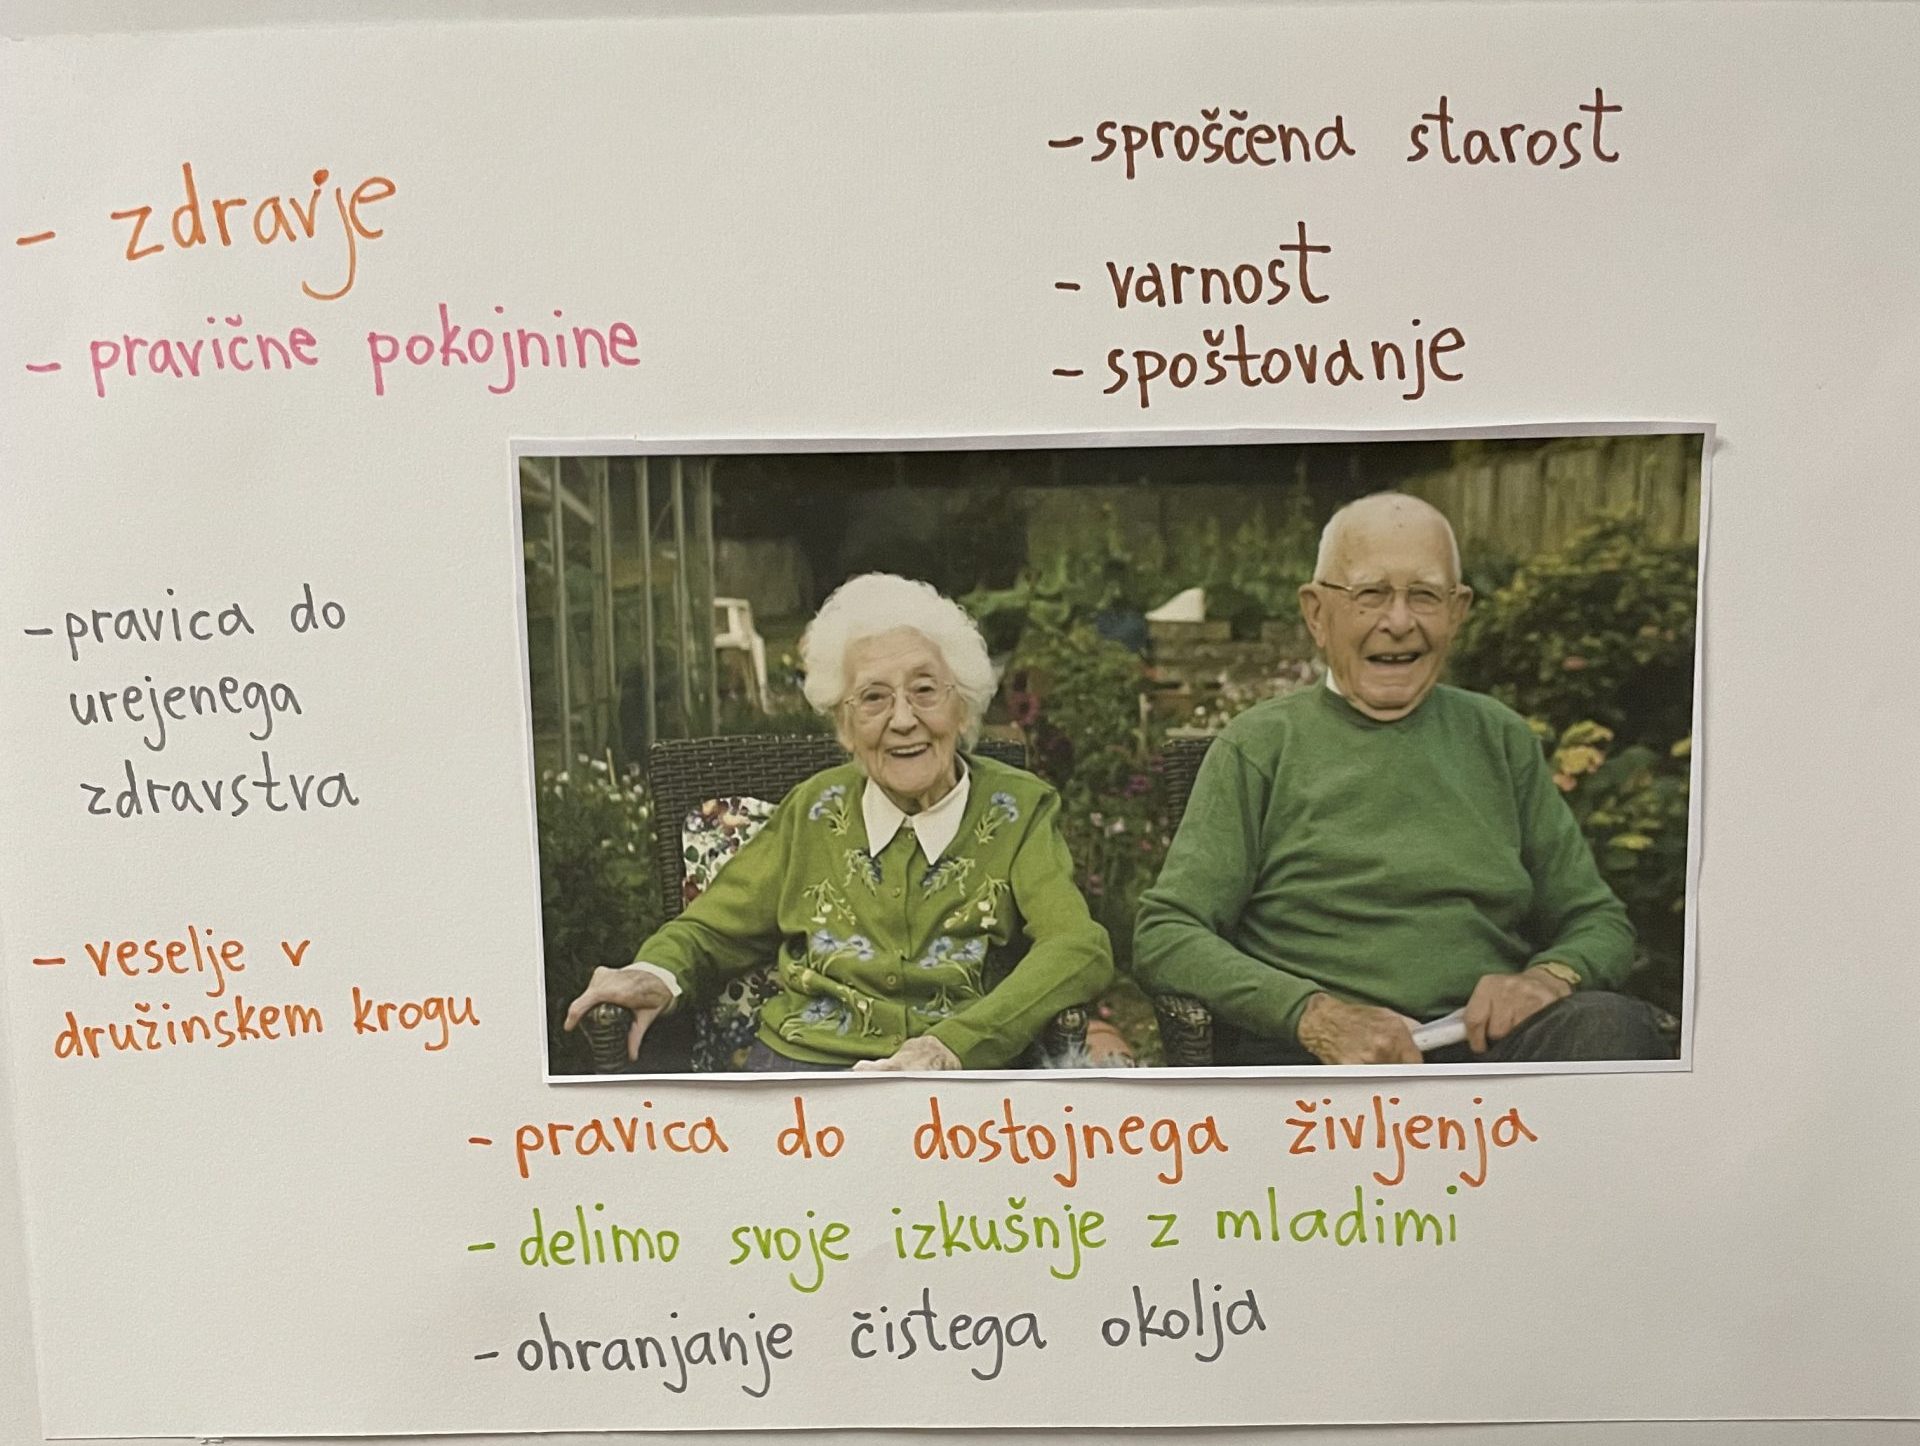 - zdravje
- pravične pokojnine
- sproščena starost
- varnost
- spoštovanje
- pravica do
urejenega
zdravstva
- veselje v
družinskem krogu
- pravica do dostojnega življenja
- delimo svoje izkušnje z mladimi
- ohranjanje čistega okolja